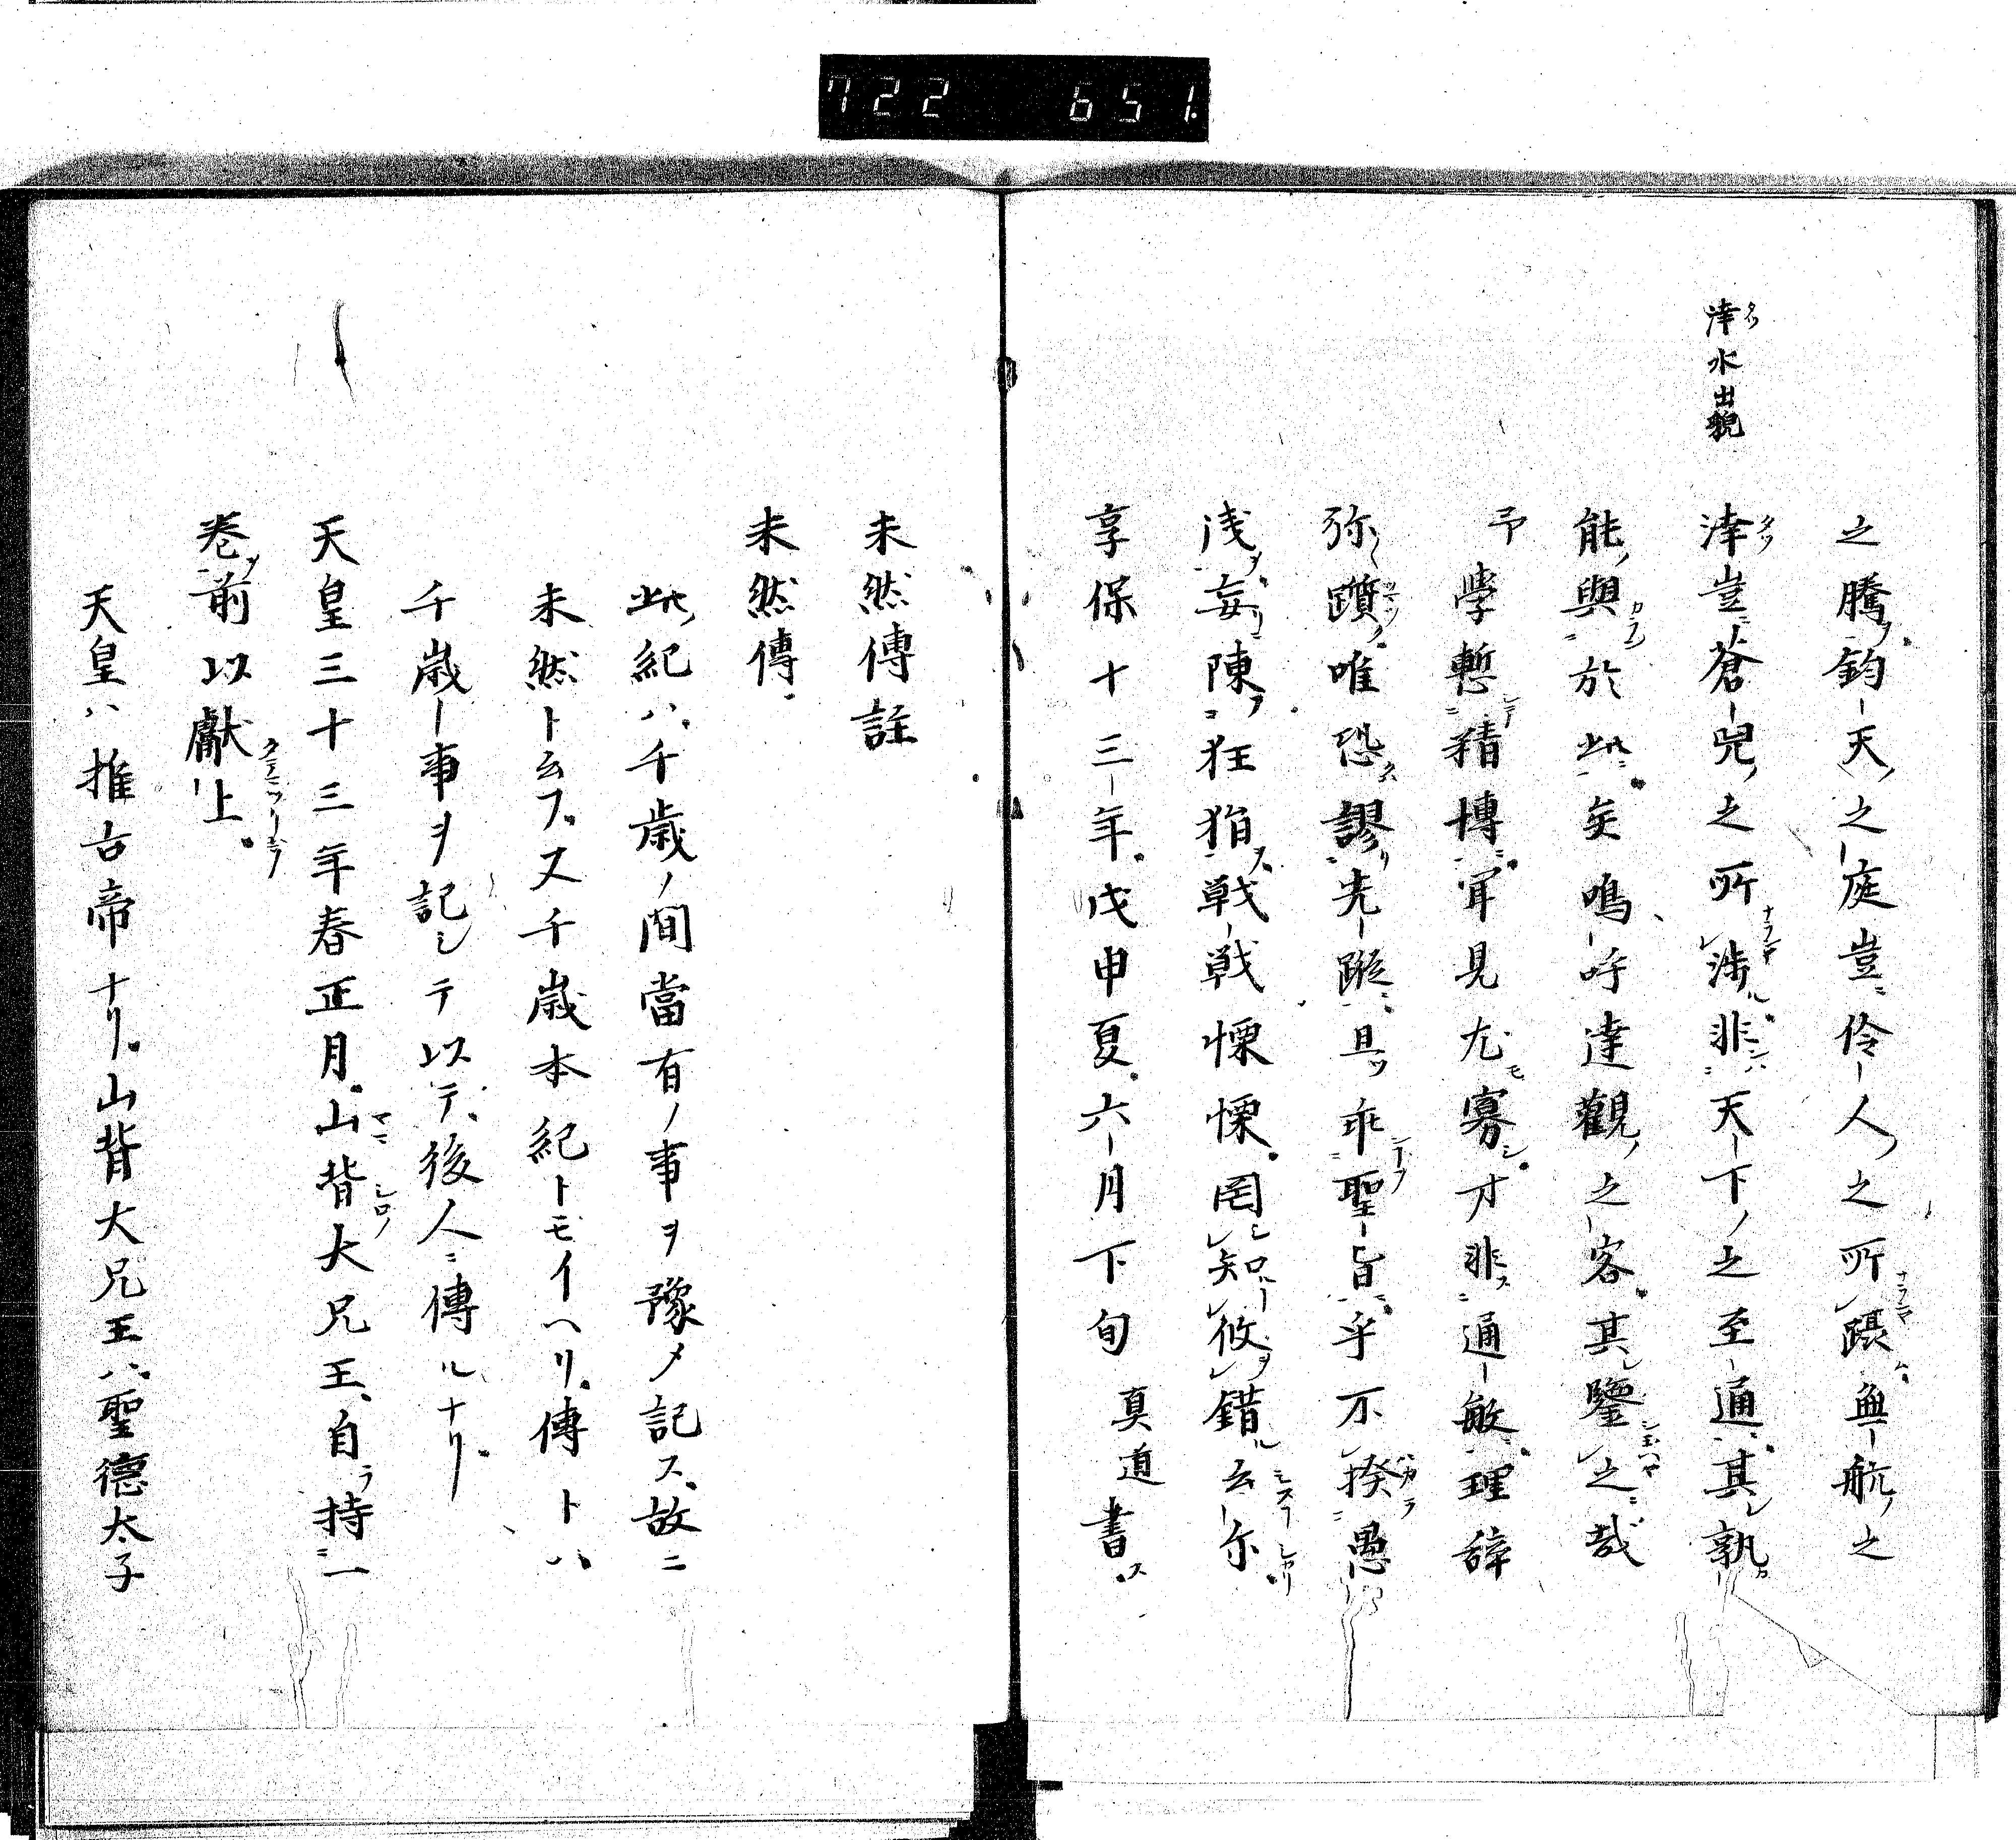 722 651.
津水出貌
之騰鈞天之庭豈伶人之所躡無航之
津豈蒼兕之所渉非天下之至通其孰
能與於此矣嗚呼達觀之客其鑒之哉
予學慙精博聞見尤寡才非通敏理辞
弥躓唯恐謬先蹤且乖聖旨乎不揆愚
浅妄陳狂狷戰戰慄慄罔知攸錯云尓
享保十三年戊申夏六月下旬 真道書ス
未然傳註
未然傳
此紀ハ千歳ノ間當有ノ事ヲ豫メ記ス故ニ
未然ト云フ又千歳本紀トモイヘリ傳トハ
千歳ノ事ヲ記シテ以テ後人ニ傳ルナリ
天皇三十三年春正月山背大兄王自持一
巻前以獻上
天皇ハ推古帝ナリ山背大兄王ハ聖徳太子